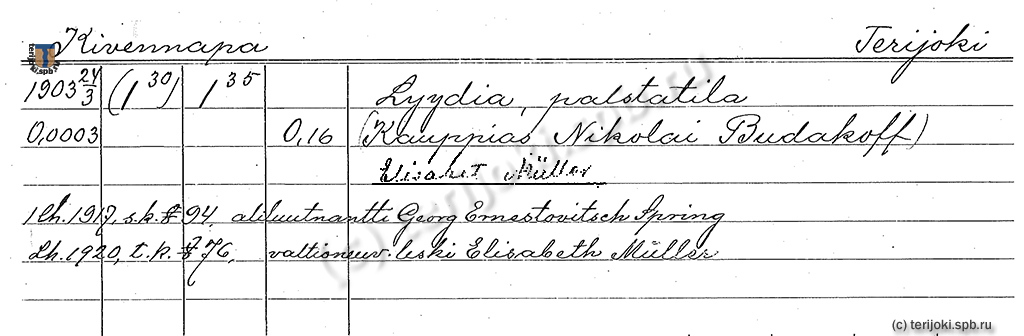 Kivennapa Terijoki
1903 24/3 (1 30) 1 35 Lyydia, palstatila
0,0003 0,16 (Kauppias Nikolai Budakoff)
Elisabet Müller
Lh. 1917, s.k. § 94, aliluutnantti Georg Ernestovitsch Spring
Lh. 1920, t.k. § 276, valtioneuv. leski Elisabeth Müller
terijoki.spb.ru
(c) terijoki.spb.ru
(c) terijoki.spb.ru